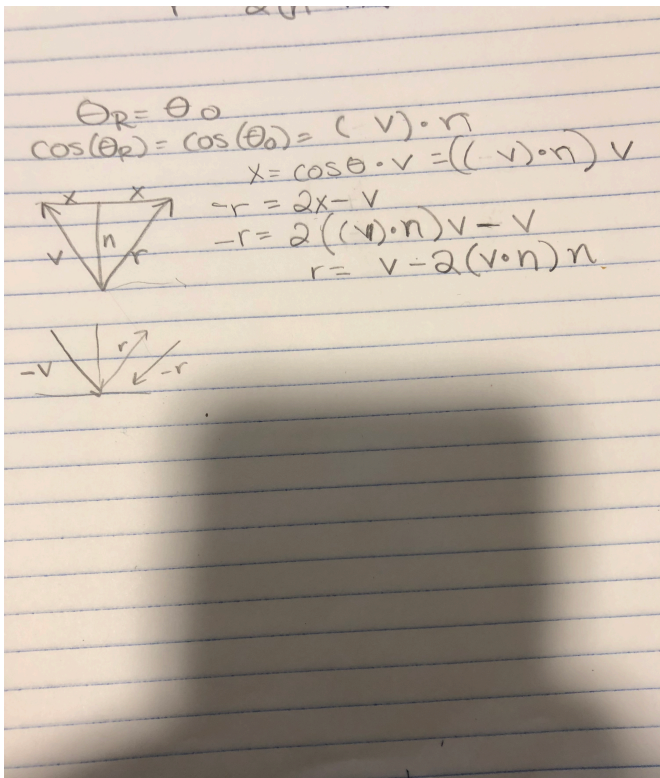 θR = θ0
cos(θR) = cos(θ0) = ( v)·n
x = cosθ·v = (( v)·n) v
-r = 2x - v
-r = 2((v)·n)v - v
r = v - 2(v·n)n.
x x
v n r
-v r -r